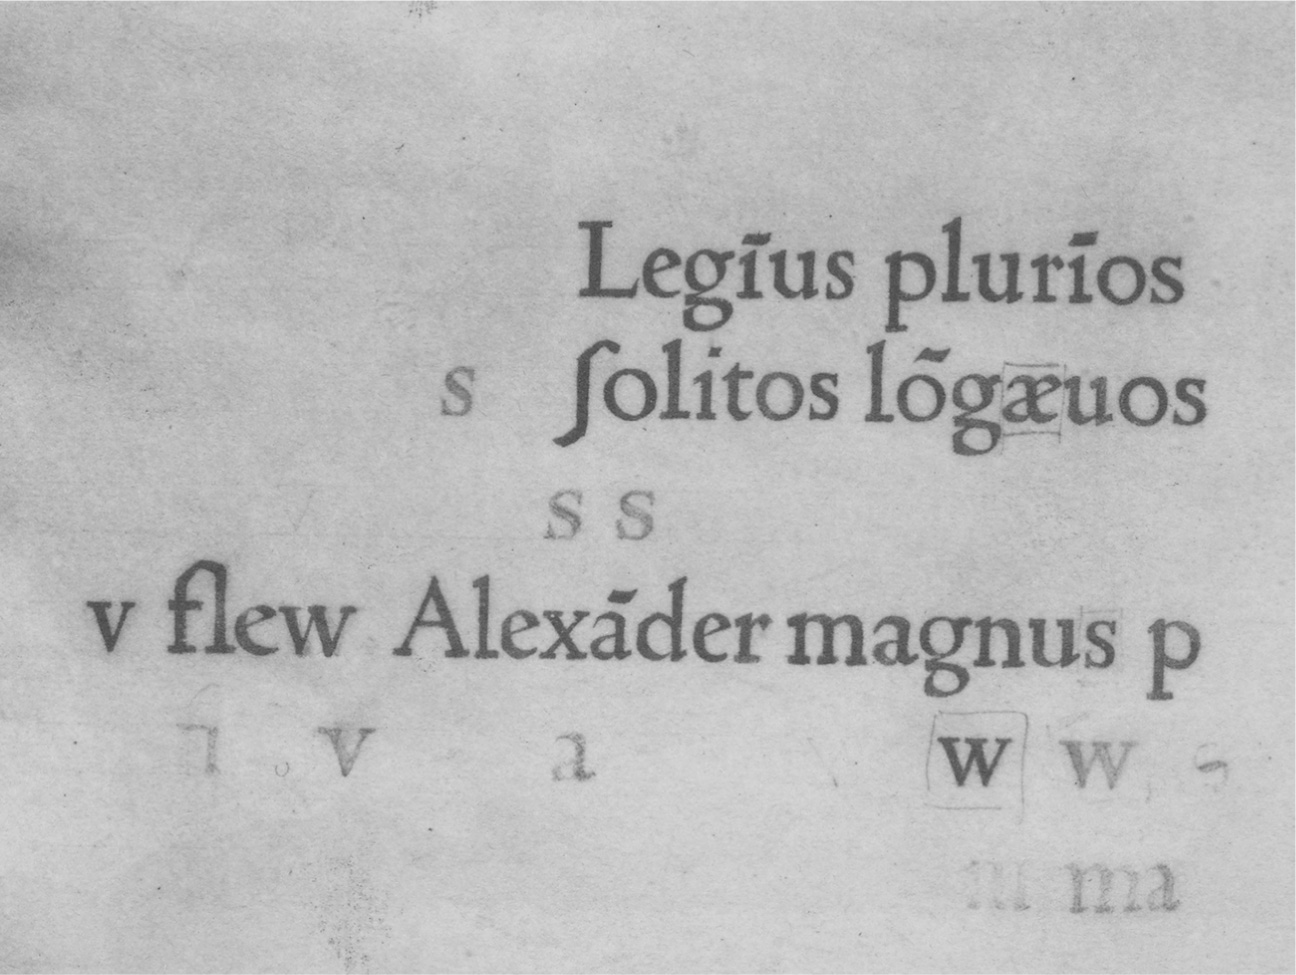 Legīus plurīos
s ſolitos lõgæuos
s s
v flew Alexãder magnus p
v a w w
m ma